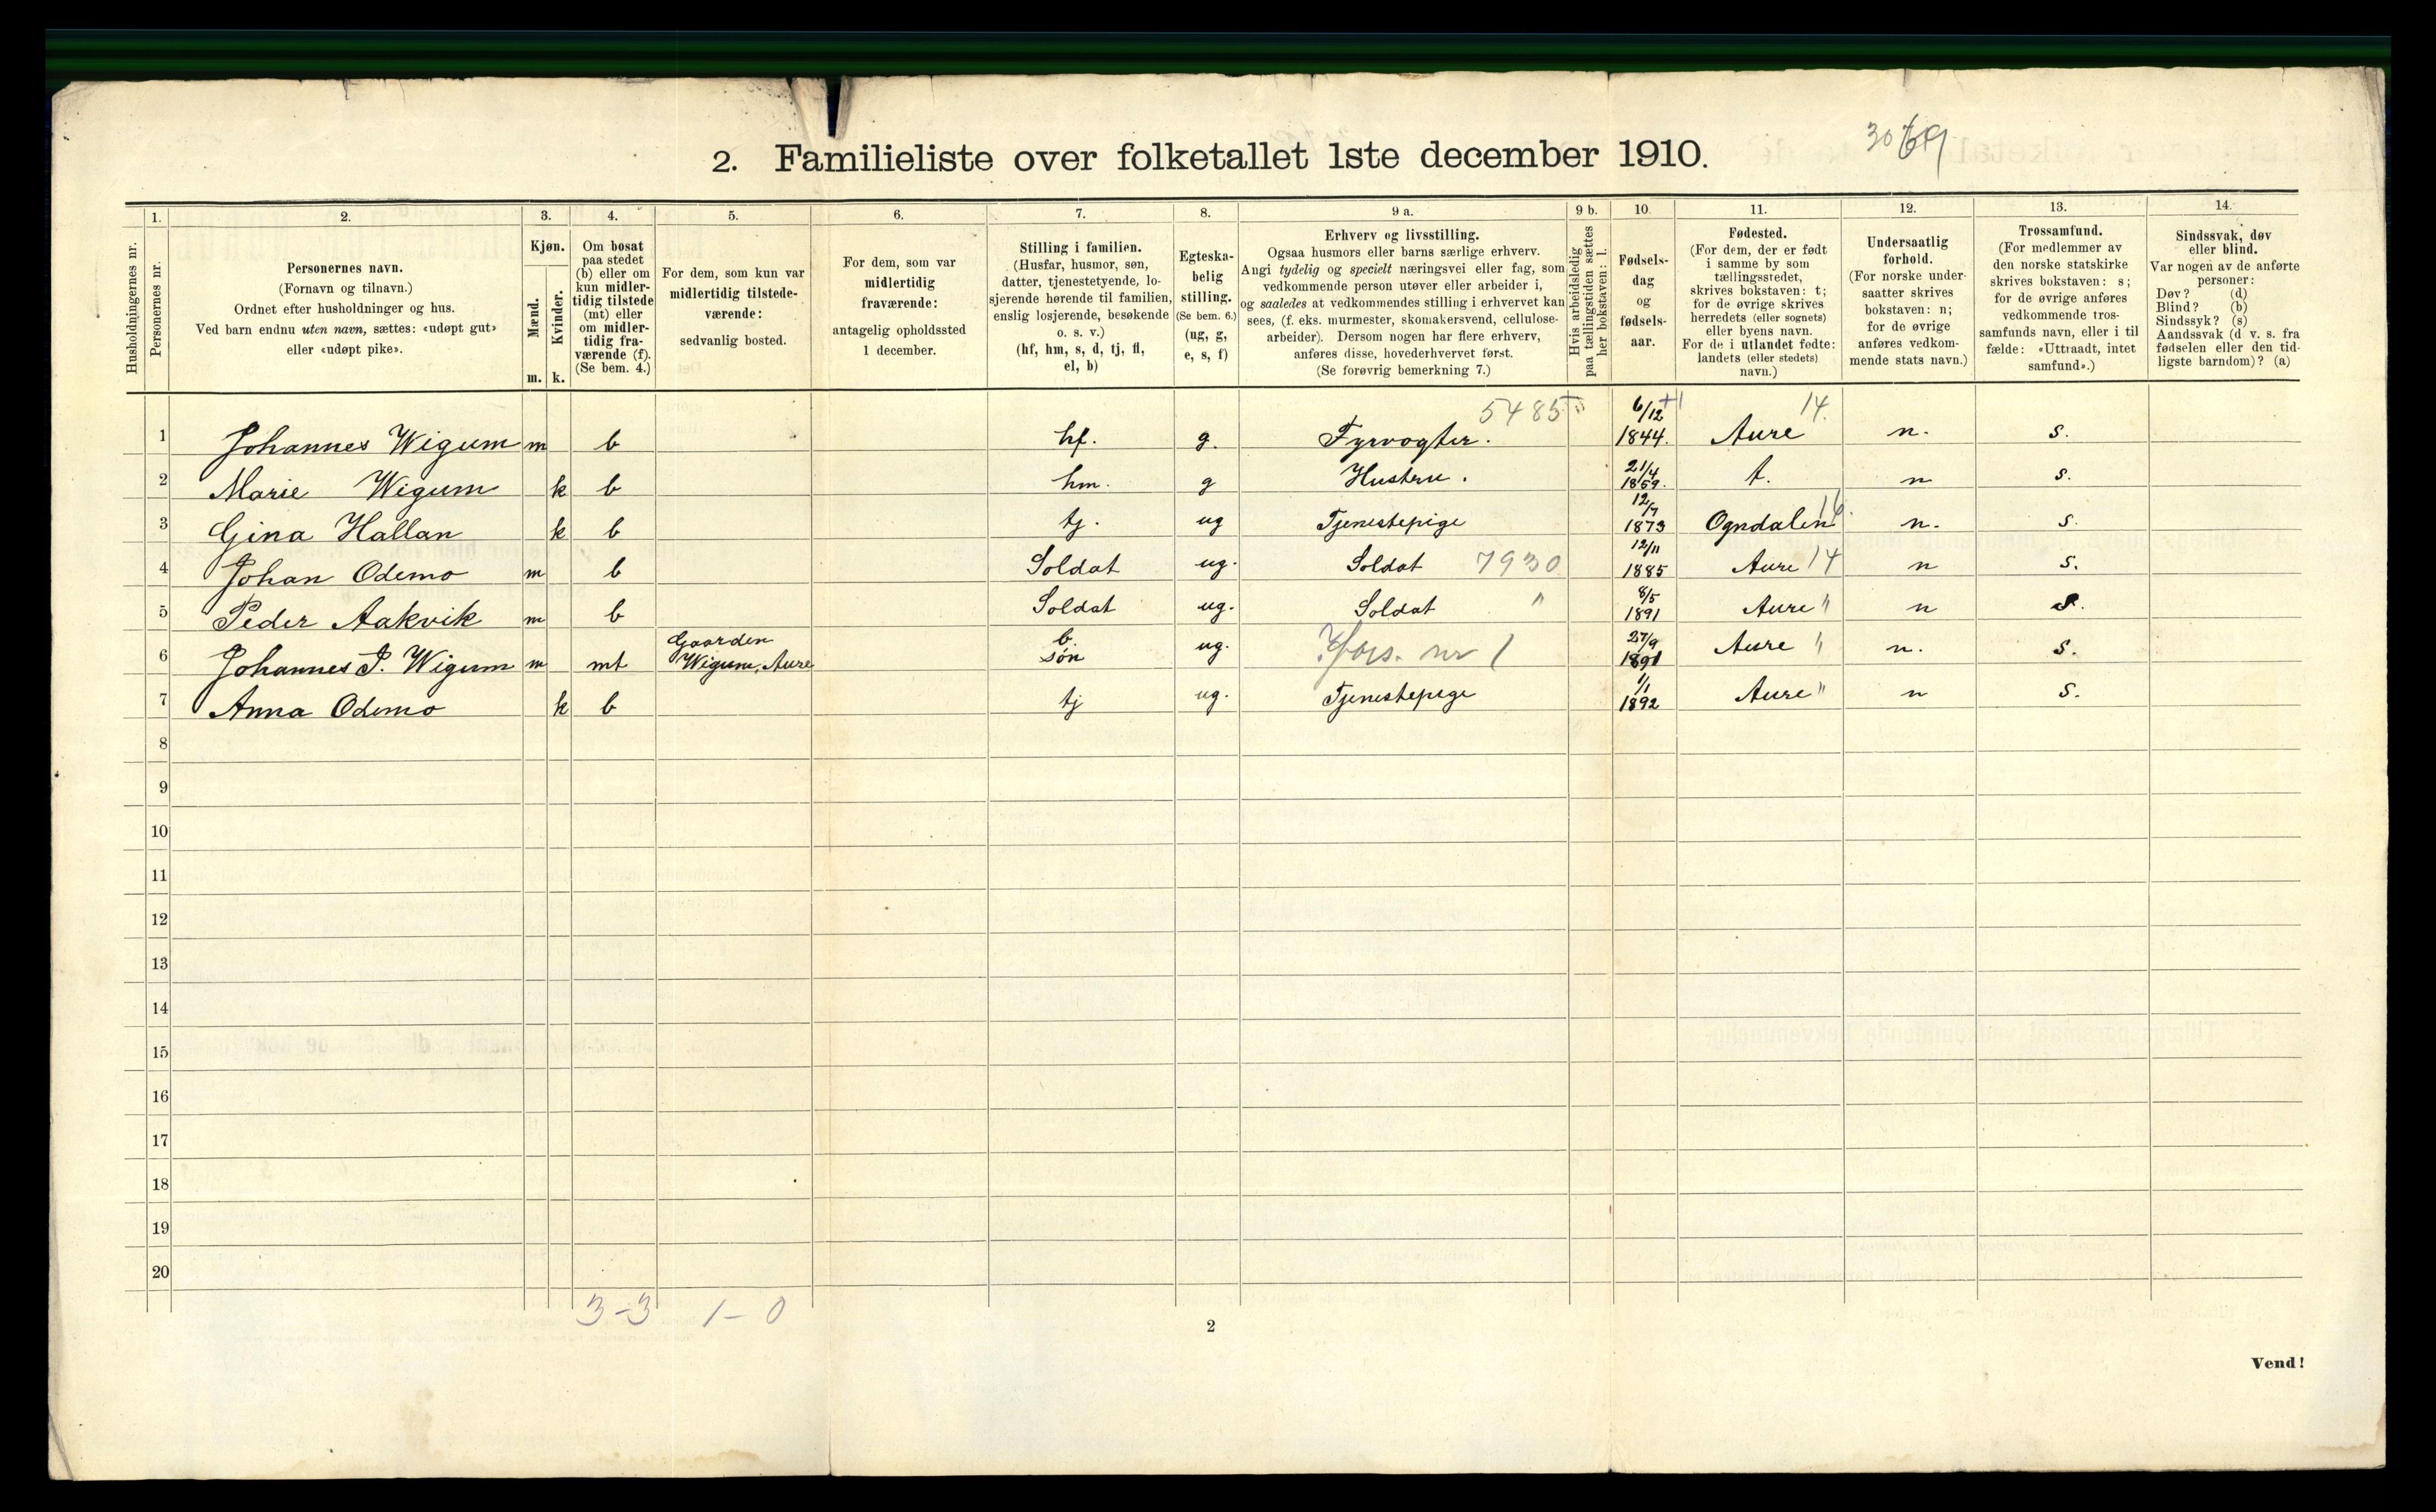 3069
2. Familieliste over folketallet 1ste december 1910.
1. 2. 3. 4. 5. 6. 7. 8. 9 a. 9 b. 10. 11. 12. 13. 14.
Husholdningernes nr.
Personernes nr.
Personernes navn.
(Fornavn og tilnavn.)
Ordnet efter husholdninger og hus.
Ved barn endnu uten navn, sættes: «udøpt gut»
eller «udøpt pike».
Kjøn.
Mænd.
Kvinder.
m. k.
Om bosat
paa stedet
(b) eller om
kun midler-
tidig tilstede
(mt) eller
om midler-
tidig fra-
værende (f).
(Se bem. 4.)
For dem, som kun var
midlertidig tilstede-
værende:
sedvanlig bosted.
For dem, som var
midlertidig
fraværende:
antagelig opholdssted
1 december.
Stilling i familien.
(Husfar, husmor, søn,
datter, tjenestetyende, lo-
sjerende hørende til familien,
enslig losjerende, besøkende
o. s. v.)
(hf, hm, s, d, tj, fl,
el, b)
Egteska-
belig
stilling.
(Se bem. 6.)
(ug, g,
e, s, f)
Erhverv og livsstilling.
Ogsaa husmors eller barns særlige erhverv.
Angi tydelig og specielt næringsvei eller fag, som
vedkommende person utøver eller arbeider i,
og saaledes at vedkommendes stilling i erhvervet kan
sees, (f. eks. murmester, skomakersvend, cellulose-
arbeider). Dersom nogen har flere erhverv,
anføres disse, hovederhvervet først.
(Se forøvrig bemerkning 7.)
Hvis arbeidsledig
paa tællingstiden sættes
her bokstaven: l.
Fødsels-
dag
og
fødsels-
aar.
Fødested.
(For dem, der er født
i samme by som
tællingsstedet,
skrives bokstaven: t;
for de øvrige skrives
herredets (eller sognets)
eller byens navn.
For de i utlandet fødte:
landets (eller stedets)
navn.)
Undersaatlig
forhold.
(For norske under-
saatter skrives
bokstaven: n;
for de øvrige
anføres vedkom-
mende stats navn.)
Trossamfund.
(For medlemmer av
den norske statskirke
skrives bokstaven: s;
for de øvrige anføres
vedkommende tros-
samfunds navn, eller i til
fælde: «Uttraadt, intet
samfund».)
Sindssvak, døv
eller blind.
Var nogen av de anførte
personer:
Døv? (d)
Blind? (b)
Sindssyk? (s)
Aandssvak (d v. s. fra
fødselen eller den tid-
ligste barndom)? (a)
5485 6/12 14.
1 Johannes Wigum m b hf. g. Fyrvogter. 1844. Aure n. s.
21/4
2 Marie Wigum k b hm. g Hustru. 1859. t. n s.
12/7 16.
3 Gina Hallan k b tj. ug Tjenestepige 1873 Ogndalen n. s.
12/11
4 Johan Odemo m b Soldat ug. Soldat 7930 1885 Aure 14 n s.
8/5
5 Peder Aakvik m b Soldat ug. Soldat " 1891 Aure " n s.
Gaarden b. 27/9
6 Johannes P. Wigum m mt Wigum, Aure søn ug. Hors. nr 1 1891 Aure " n. s.
1/1
7 Anna Odemo k b tj ug. Tjenestepige 1892 Aure " n s.
8
9
10
11
12
13
14
15
16
17
18
19
20
3-3 1-0
2
Vend!